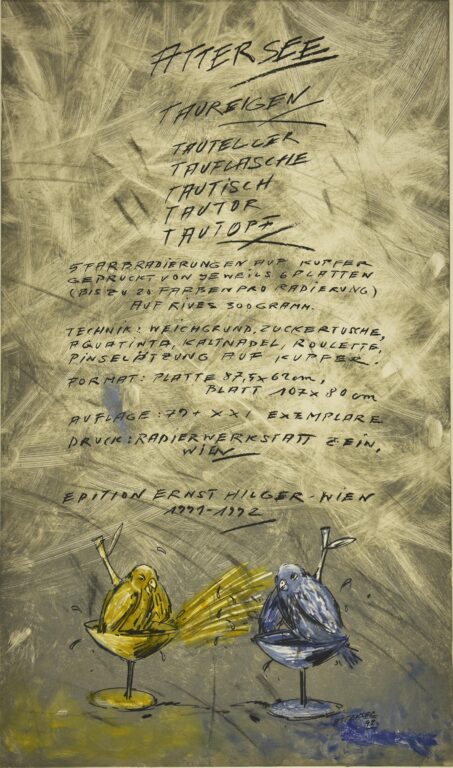 ATTERSEE
TAUREIGEN
TAUTELLER
TAUFLASCHE
TAUTISCH
TAUTOR
TAUTOPF
5 FARBRADIERUNGEN AUF KUPFER
GEDRUCKT VON JEWEILS 6 PLATTEN
(BIS ZU 20 FARBEN PRO RADIERUNG)
AUF RIVES 300 GRAMM.
TECHNIK: WEICHGRUND, ZUCKERTUSCHE,
AQUATINTA, KALTNADEL, ROULETTE,
PINSELÄTZUNG AUF KUPFER.
FORMAT: PLATTE 87,5 x 62 cm,
BLATT 107 x 80 cm
AUFLAGE: 79 + XXI EXEMPLARE
DRUCK: RADIERWERKSTATT ZEIN,
WIEN
EDITION ERNST HILGER-WIEN
1991-1992
ATTERSEE
92